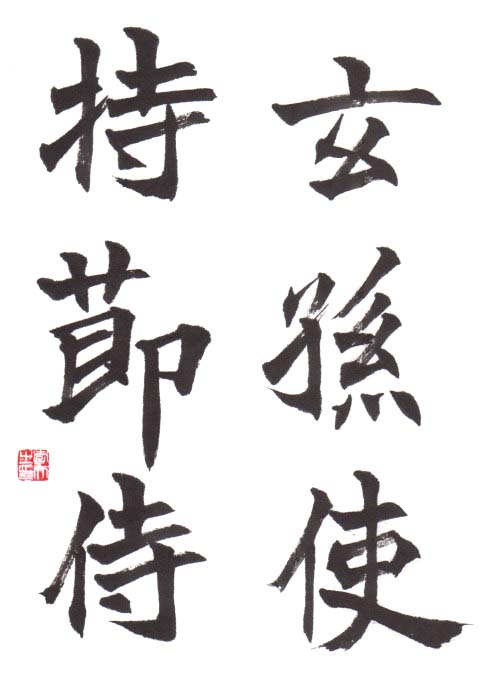 玄孫使
持莭侍